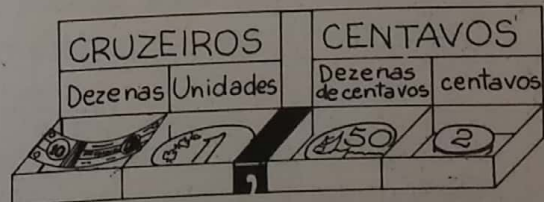 CRUZEIROS CENTAVOS
Dezenas Unidades Dezenas de centavos centavos
10 50 2
,